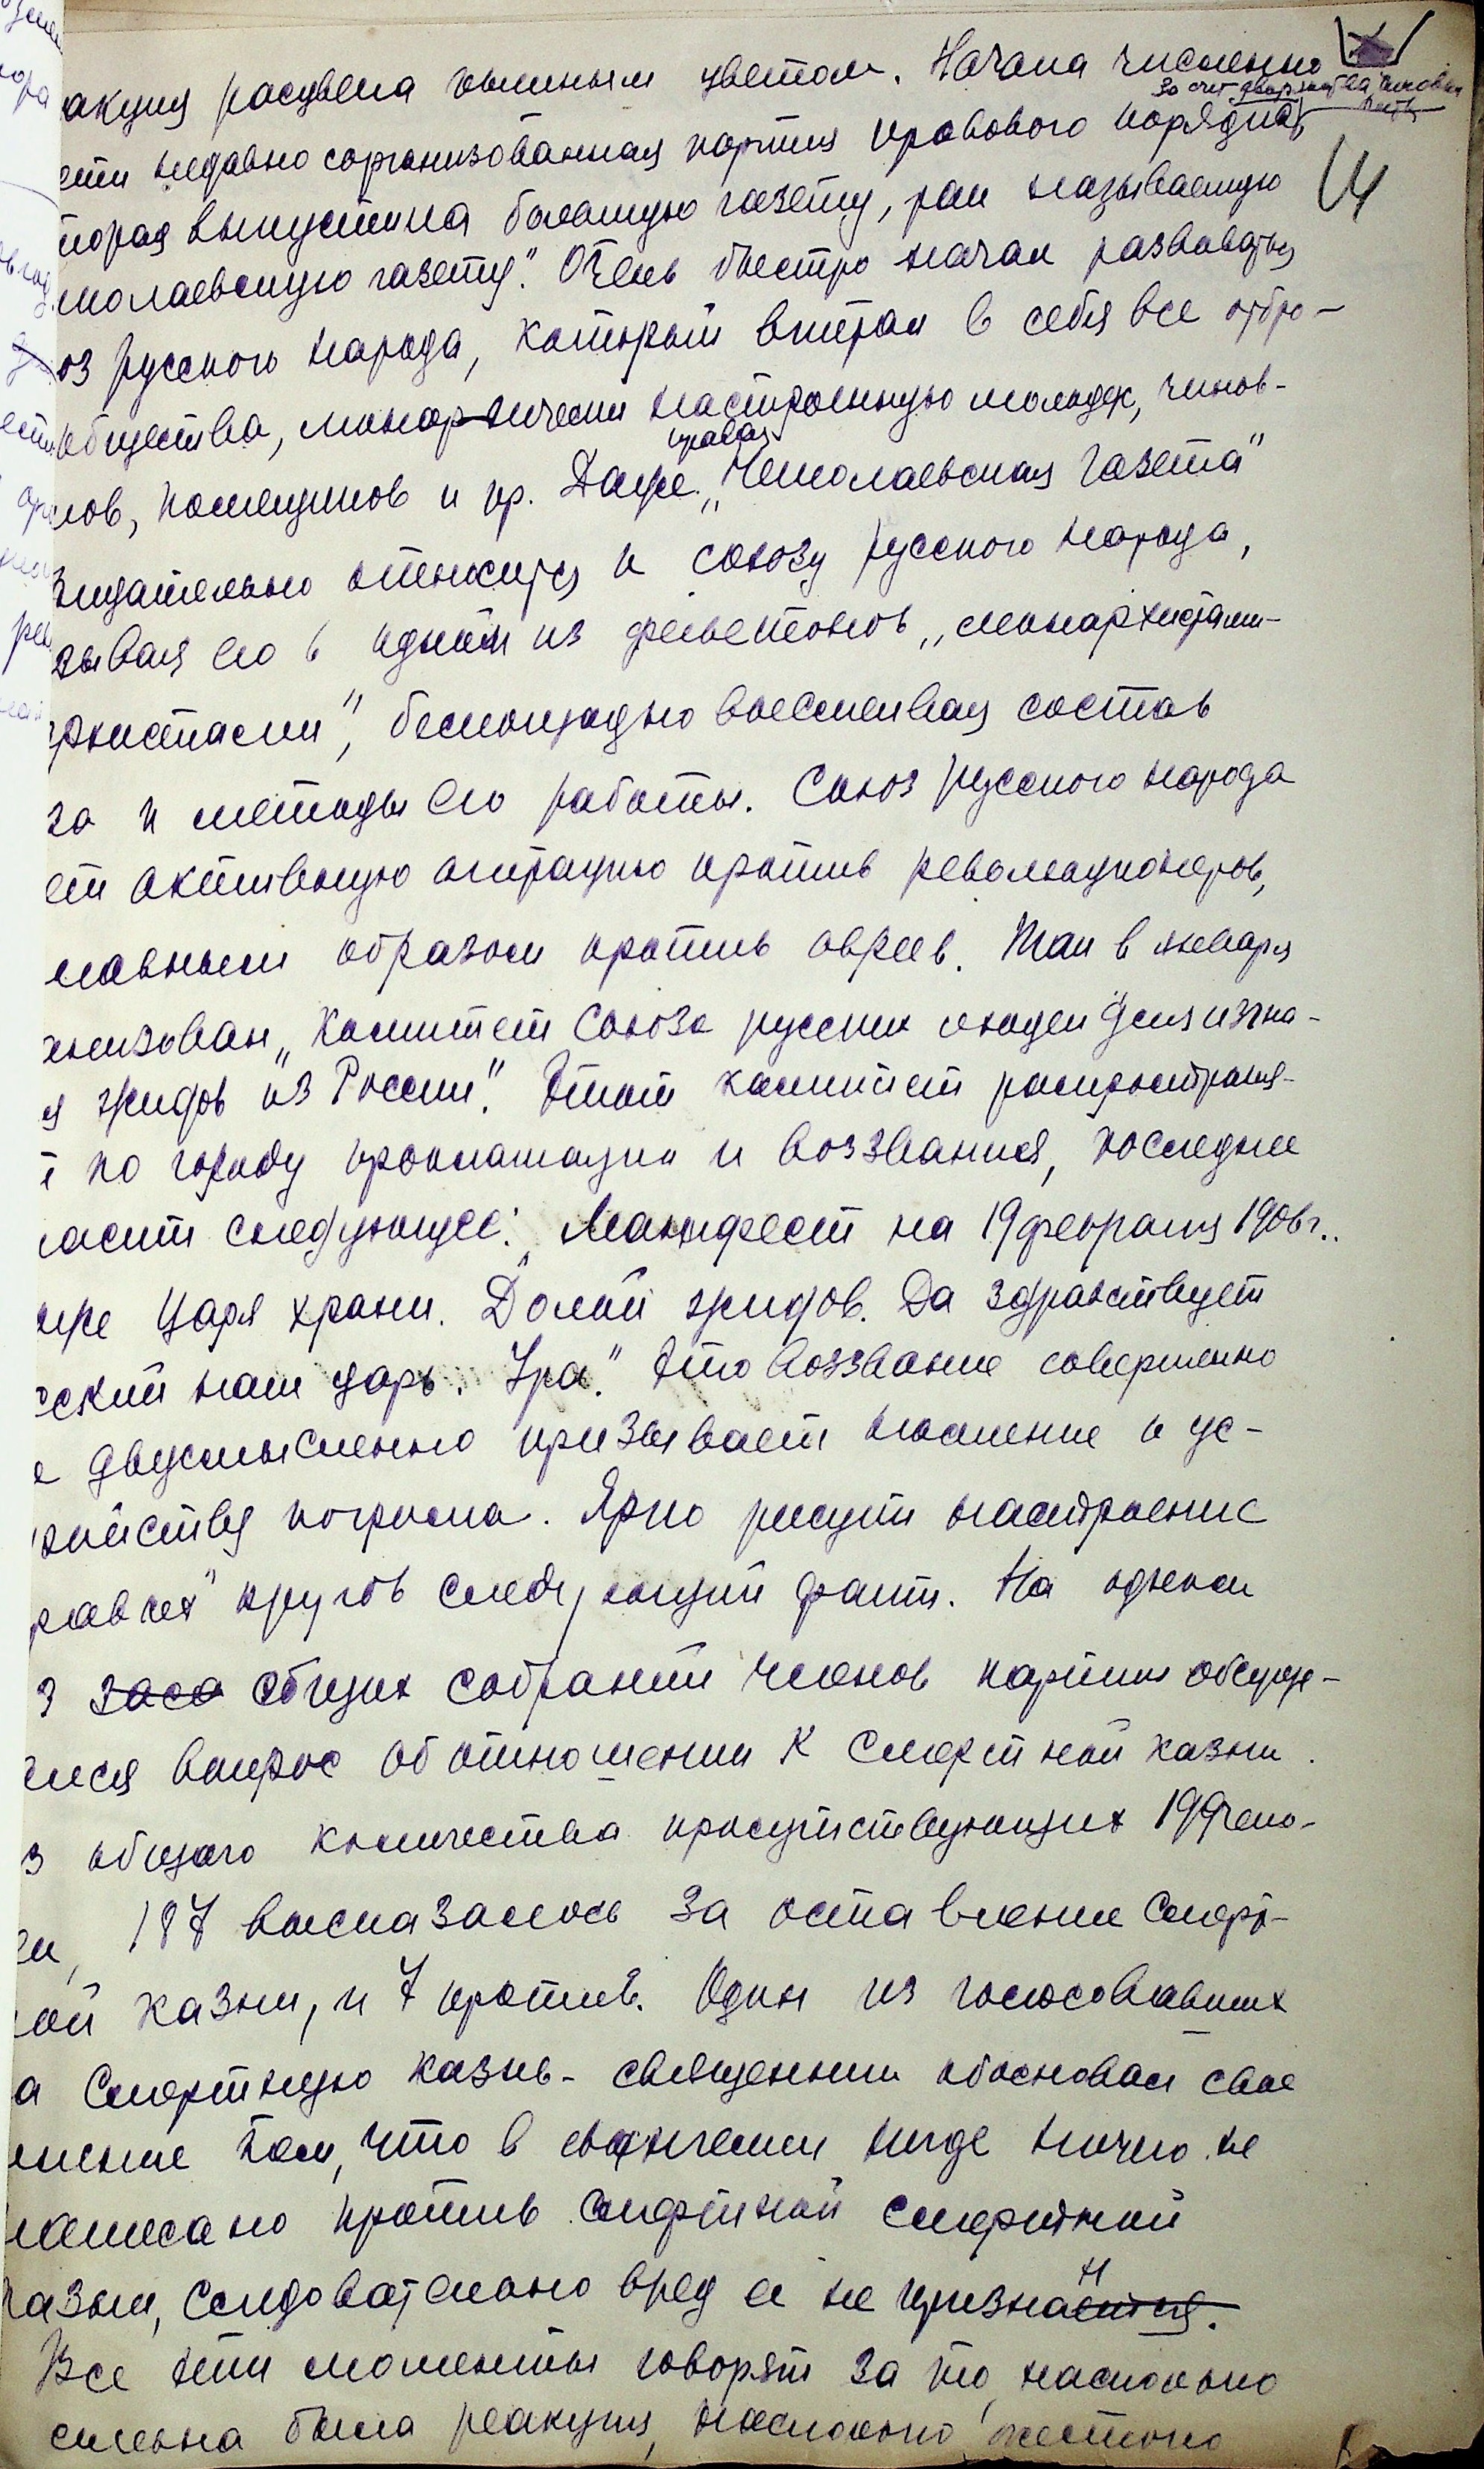 акция расцвела пышным цветом. Начала численно
за счет дворянства, чиновн
расти недавно сорганизованная партия правового порядка,
торая выпустила большую газету, ран называемую
колаевскую газету". Очень быстро начал развиваться
юз русского народа, который впитал в себя все отбро-
общества, монархически настроенную молодеж, чинов-
правая
ков, помещиков и пр. Даже „Николаевская газета"
рицательно относится к союзу русского народа,
зывая его в одном из фельетонов „монархистами-
рхистами", беспощадно высмеивая состав
за и методы его работы. Союз русского народа
ет активную агитацию против революционеров,
лавным образом против евреев. Так в января
низован „Комитет Союза русских людей для изгна-
я жидов из России". Этот комитет распространя-
т по городу прокламации и воззвания, последнее
ласит следующее: „Манифест на 19 февраля 1906 г..
оже Царя храни. Долой жидов. Да здравствует
сский наш царь. Ура." Это воззвание совершенно
е двусмысленно призывает население к ус-
ройству погрома. Ярко рисует настроение
равых" кругов следующий факт. На одном
з засо общих собраний членов партии обсужд-
лся вопрос об отношении к смертной казни.
з общего количества присутствующих 199 чело-
ек, 187 высказалось за оставление смерт-
ной казни, и 7 против. Один из голосовавших
а смертную казнь - священник обосновал свое
мнение тем, что в евангелии нигде ничего не
написано против смертной смертной
казни, следовательно вред ее не признается.
Все эти моменты говорят за то, насколько
сильна была реакция, насколько жестоко